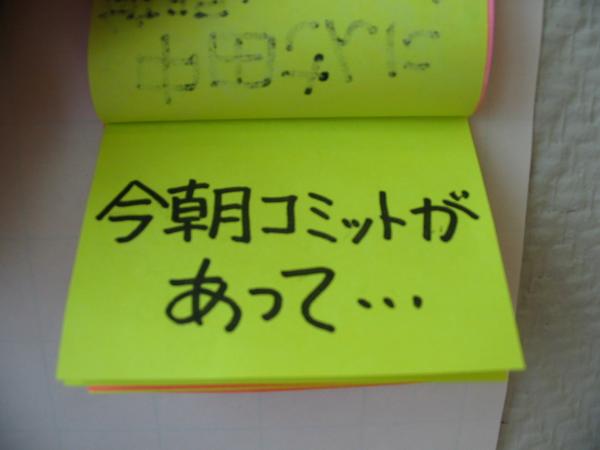 今朝コミットが
あって…